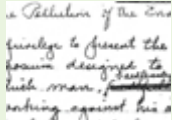 e Pollution of the End
privilege to present the
posium designed to
which man,
working against his a